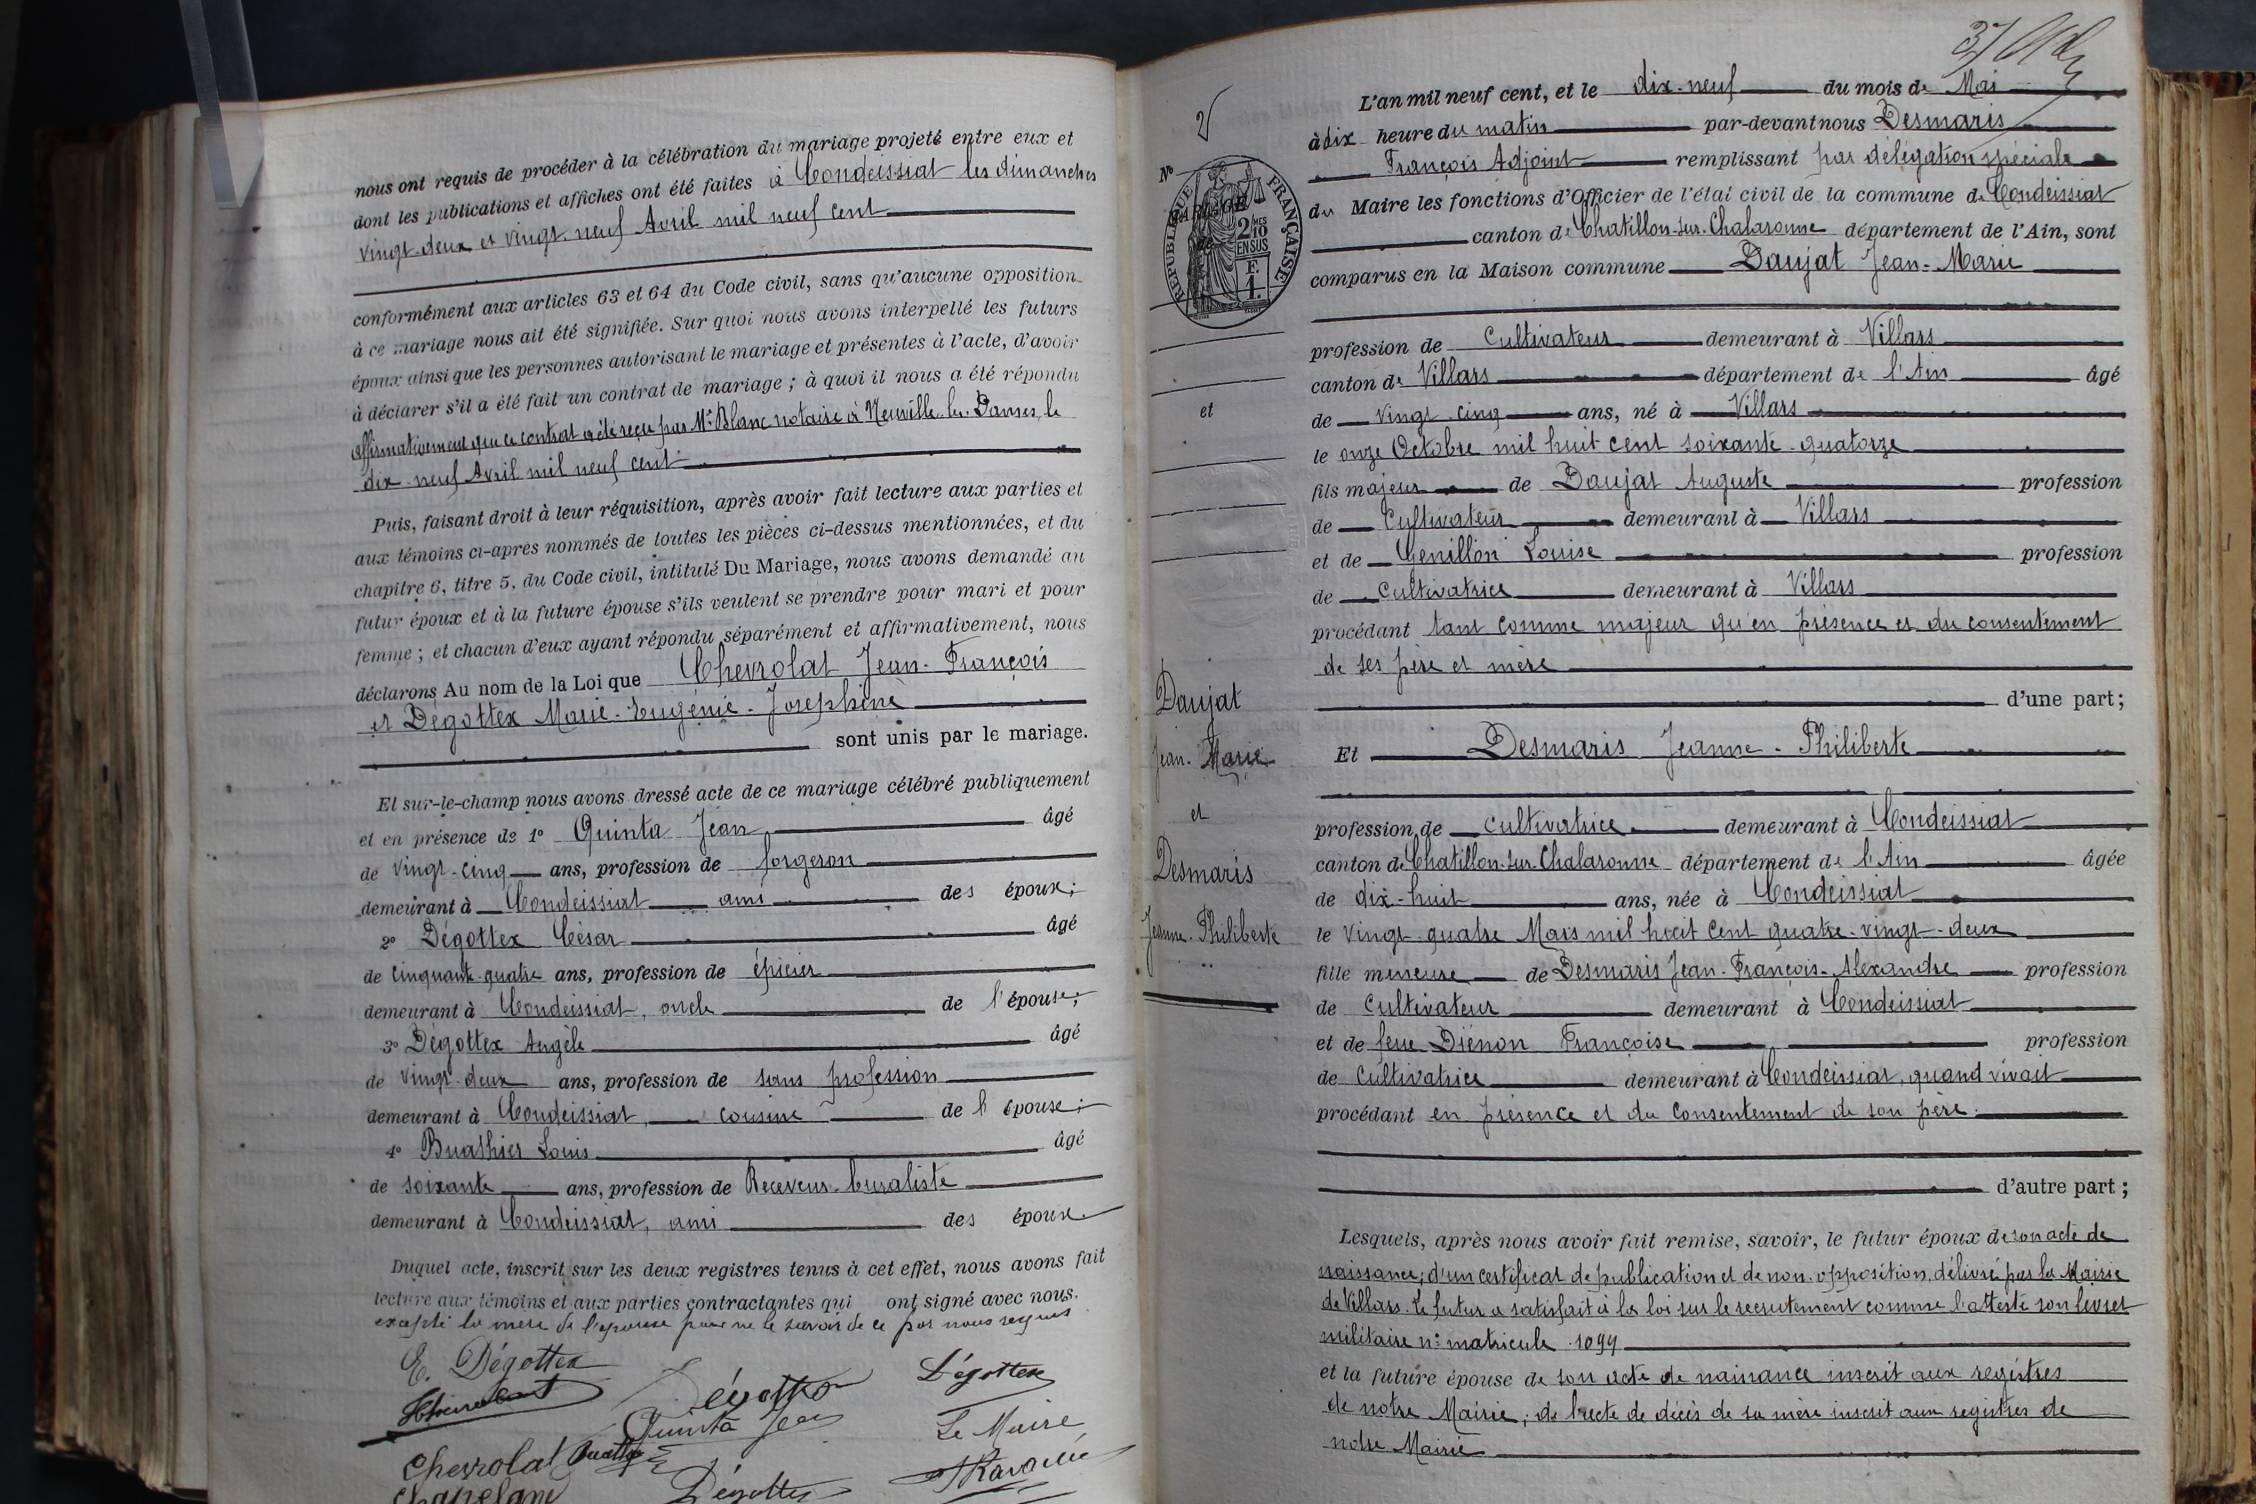 nous ont requis de procéder à la célébration du mariage projeté entre eux et
dont les publications et affiches ont été faites à Condeissiat les dimanches
vingt-deux et vingt-neuf Avril mil neuf cent
conformément aux articles 63 et 64 du Code civil, sans qu'aucune opposition
à ce mariage nous ait été signifiée. Sur quoi nous avons interpellé les futurs
époux ainsi que les personnes autorisant le mariage et présentes à l'acte, d'avoir
à déclarer s'il a été fait un contrat de mariage ; à quoi il nous a été répondu
affirmativement que ce contrat a été reçu par Me Blanc notaire à Neuville-les-Dames, le
dix-neuf Avril mil neuf cent
Puis, faisant droit à leur réquisition, après avoir fait lecture aux parties et
aux témoins ci-après nommés de toutes les pièces ci-dessus mentionnées, et du
chapitre 6, titre 5, du Code civil, intitulé Du Mariage, nous avons demandé au
futur époux et à la future épouse s'ils veulent se prendre pour mari et pour
femme ; et chacun d'eux ayant répondu séparément et affirmativement, nous
déclarons Au nom de la Loi que Chevrolat Jean-François
et Dégottex Marie-Eugénie-Joséphine
sont unis par le mariage.
Et sur-le-champ nous avons dressé acte de ce mariage célébré publiquement
et en présence de 1° Quinta Jean âgé
de vingt-cinq ans, profession de forgeron
demeurant à Condeissiat ami des époux;
2° Dégottex César âgé
de cinquante-quatre ans, profession de épicier
demeurant à Condeissiat, oncle de l'épouse;
3° Dégottex Angèle âgé
de vingt-deux ans, profession de sans profession
demeurant à Condeissiat, cousine de l'épouse;
4° Buathier Louis âgé
de soixante ans, profession de Receveur-buraliste
demeurant à Condeissiat, ami des époux
Duquel acte, inscrit sur les deux registres tenus à cet effet, nous avons fait
lecture aux témoins et aux parties contractantes qui ont signé avec nous.
excepté la mère de l'épouse pour ne le savoir de ce par nous requis
E. Dégottex
Dégottex
Dégottex
Quinta Jean
Le Maire
Chevrolat
Dégottex
Chapeland
37
2
N°
MARIAGE
de
RÉPUBLIQUE FRANÇAISE
2/10 EN SUS
F.
1.
et
Daujat
Jean-Marie
et
Desmaris
Jeanne-Philiberte
L'an mil neuf cent, et le dix-neuf du mois de Mai
à dix heure du matin par-devant nous Desmaris
François Adjoint remplissant par délégation spéciale
du Maire les fonctions d'Officier de l'état civil de la commune de Condeissiat
canton de Chatillon-sur-Chalaronne département de l'Ain, sont
comparus en la Maison commune Daujat Jean-Marie
profession de Cultivateur demeurant à Villars
canton de Villars département de l'Ain âgé
de vingt-cinq ans, né à Villars
le onze Octobre mil huit cent soixante-quatorze
fils majeur de Daujat Auguste profession
de Cultivateur demeurant à Villars
et de Genillon Louise profession
de Cultivatrice demeurant à Villars
procédant tant comme majeur qu'en présence et du consentement
de ses père et mère
d'une part;
Et Desmaris Jeanne-Philiberte
profession de cultivatrice demeurant à Condeissiat
canton de Chatillon-sur-Chalaronne département de l'Ain âgée
de dix-huit ans, née à Condeissiat
le vingt-quatre Mars mil huit cent quatre-vingt-deux
fille mineure de Desmaris Jean-François-Alexandre profession
de Cultivateur demeurant à Condeissiat
et de feue Diénon Françoise profession
de Cultivatrice demeurant à Condeissiat, quand vivait
procédant en présence et du consentement de son père.
d'autre part ;
Lesquels, après nous avoir fait remise, savoir, le futur époux de son acte de
naissance; d'un certificat de publication et de non-opposition, délivré par la Mairie
de Villars. Le futur a satisfait à la loi sur le recrutement comme l'atteste son livret
militaire n° matricule 1099
et la future épouse de son acte de naissance inscrit aux registres
de notre Mairie; de l'acte de décès de sa mère inscrit aux registres de
notre Mairie